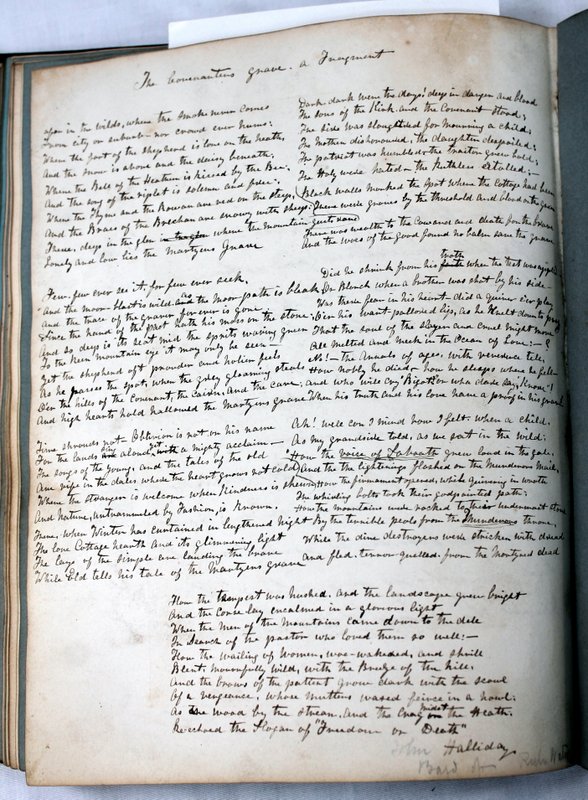 The Covenanters Grave. a Fragment
afar in the wilds, where the smoke never comes
From city or suburb nor crowd ever hums:
Where the foot of the shepherd is lone on the heath,
And the moor is above and the daisy beneath,
Where the Bell of the Heathen is kissed by the Bee.
And the song of the riplet is solemn and free.
Where the Thyme and the Rowan are red on the steep,
And the Braes of the Brechan are snowy with sheep:
There, deep in the glen where the mountain
Lonely and low lies the Martyrs Grave
Few, few ever see it, for few ever seek.
And the moon-blast is wild as the moor path is bleak
And the trace of the graver for ever is gone
Since the hand of the past hath his moss on the stone:
And so deep is its seat mid the sprits waving green
To the keen mountain eye it may only be seen —
Yet the shepherd oft ponders and holier feels
As he passes the spot, when the grey gloaming steals
O'er the hills of the Covenant, the cairn, and the cave,
And high hearts hold hallowed the Martyrs grave
Time shrouds not – Oblivion is not on his name
For the lands are aloud yet with a mighty acclaim —
The songs of the young, and the tales of the old
Are rife in the dales where the heart grows not cold
Where the stranger is welcome when kindness is shewn
And Nature, untrammeled by Fashion, is known.
There, when Winter has curtained in lengthened Night
The lone Cottage hearth and its glimmering light
The lays of the simple are lauding the brave
While Eld tells his tale of the Martyrs Grave
Dark, dark were the days! days in danger and blood
The sons of the Kirk and the Covenant stood;
The Sire was slaughtered for mourning a child;
The Mother dishonoured, the daughter despoiled;
The patriot was humbled the traitor grew bold;
The Holy were hated – the Ruthless extolled; –
Black walls marked the spot where the Cottage had been
There were groans by the threshold and blood on the green
There was wealth to the Coward and death for the brave
And the woes of the good found no balm save the grave
Did he shrink from his troth when the test was applied
Or Blench when a brother was shot by his side –
Was there fear in his heart – did a quiver e'er play
O'er his wan pallored lips, as he knelt down to pray
That the soul of the slayer and cruel might move
All melted and meek in the Ocean of Love: –
No! – The annals of ages, with reverence tell,
How nobly he died – how he sleeps where he fell –
and who will cry "Bigot" or who dare say "Knave"!
When his truth and his love have a spring in his grave
Ah! well can I mind how I felt, when a child,
As my grandsire told, as we sat in the wild.
How the voice of Sabaoth grew loud in the gale,
And the lightnings flashed on the Murderous Mail,
How the firmament opened, while quivering in wrath
The whizzing bolts took their godspainted path:
How the mountains were rocked to their undermost stone
By the terrible peals from the Thunderous throne,
While the dire destroyers were stricken with dread
And fled, terror-quelled, from the Martyred dead
How the tempest was hushed, and the landscape grew bright
And the Corse lay encalmed in a glorious light
When the Men of the Mountains came down to the dell
In Search of the pastor who loved them so well: –
How the wailing of Women, woe-wakened, and shrill
Blent mournfully wild, with the Breeze of the hill:
And the brows of the patient grew dark with the scowl
Of a vengeance, whose mutters waxed fierce in a howl.
As the wood by the stream, and the Crag midst the Heath.
Reechoed the Slogan of "Freedom or Death"
John Halliday
Bard